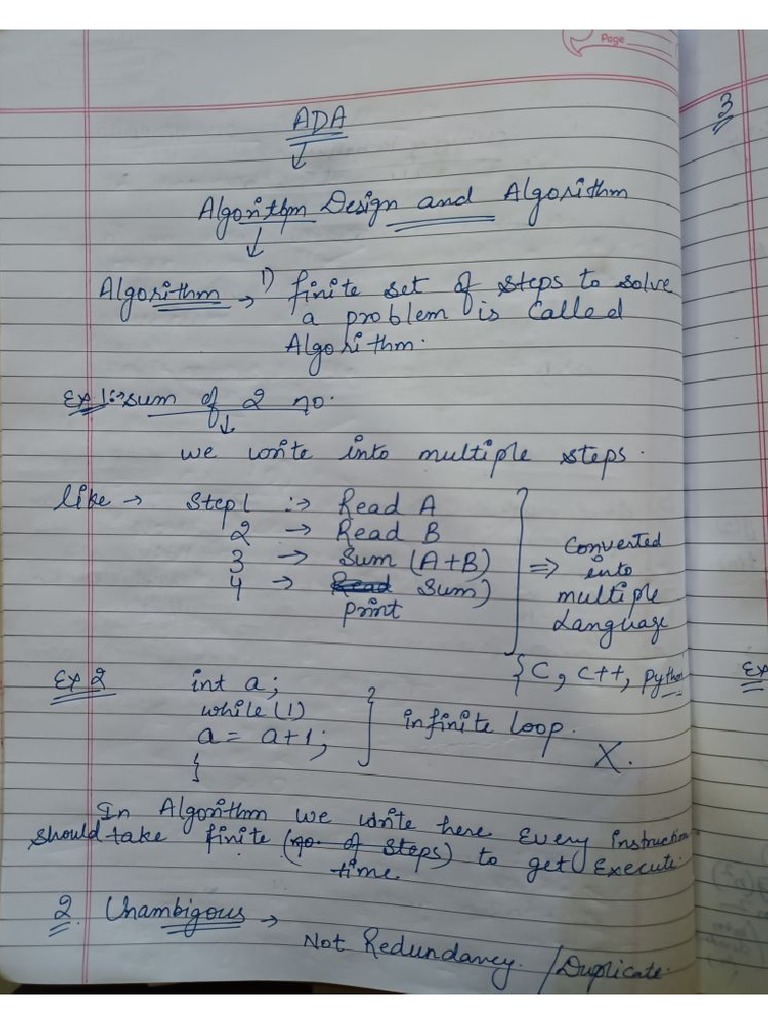 Page
ADA
↓
Algorithm Design and Algorithm
↓
Algorithm → 1) finite set of steps to solve
a problem is called
Algorithm.
Ex 1:→ sum of 2 no.
↓
we write into multiple steps.
like → Step1 :→ Read A
2 → Read B
3 → Sum (A+B)
4 → Read Sum)
print
⇒ Converted
into
multiple
Language
{C, C++, Python
Ex 2 int a;
while(1)
a = a+1;
}
infinite loop.
X.
In Algorithm we write here Every instruction
should take finite (no. of steps) to get Execute.
time
2. Unambigous →
Not Redundancy. /Duplicate.
3
Ex